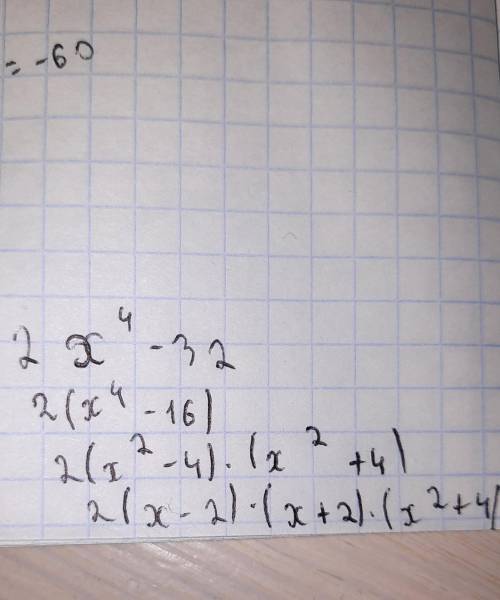 = -60
2 x⁴ - 32
2(x⁴ - 16)
2(x² - 4)·(x² + 4)
2(x - 2)·(x + 2)·(x² + 4)